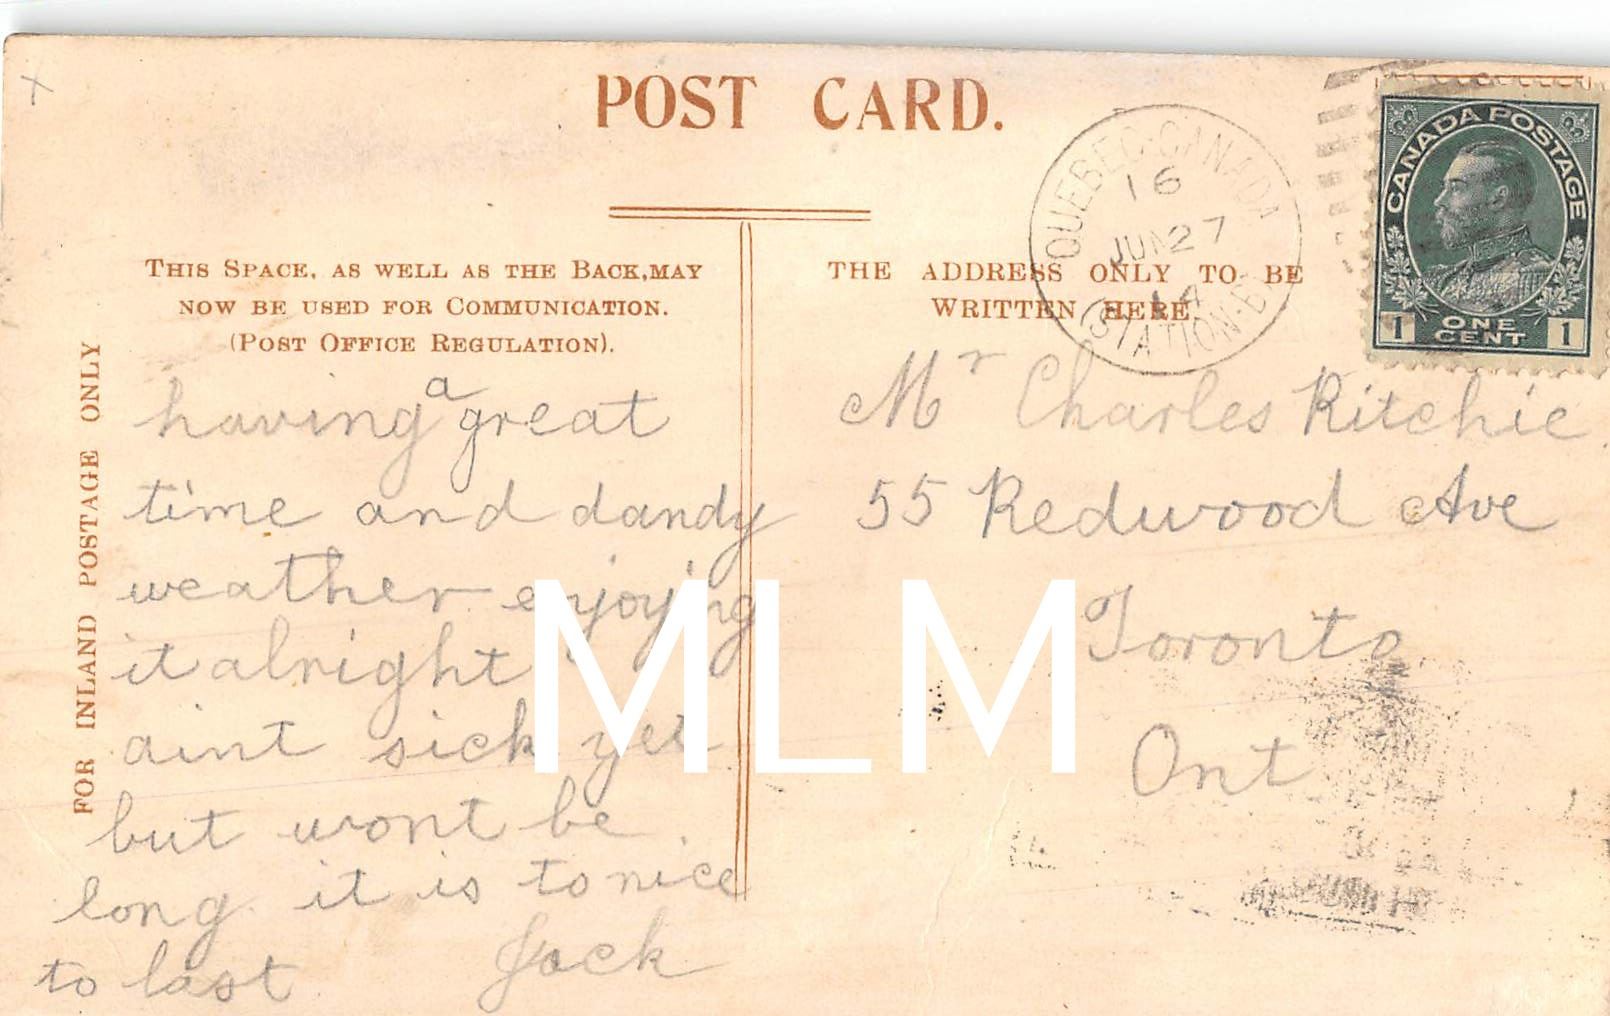 POST CARD.
QUEBEC·CANADA
16
JUN 27
14
STATION·B
CANADA POSTAGE
1 ONE CENT 1
THIS SPACE, AS WELL AS THE BACK, MAY
NOW BE USED FOR COMMUNICATION.
(POST OFFICE REGULATION).
THE ADDRESS ONLY TO BE
WRITTEN HERE.
FOR INLAND POSTAGE ONLY
having a great
time and dandy
weather enjoying
it alright
aint sick yet
but wont be
long it is to nice
to last Jack
Mr Charles Ritchie
55 Redwood Ave
Toronto
Ont
MLM